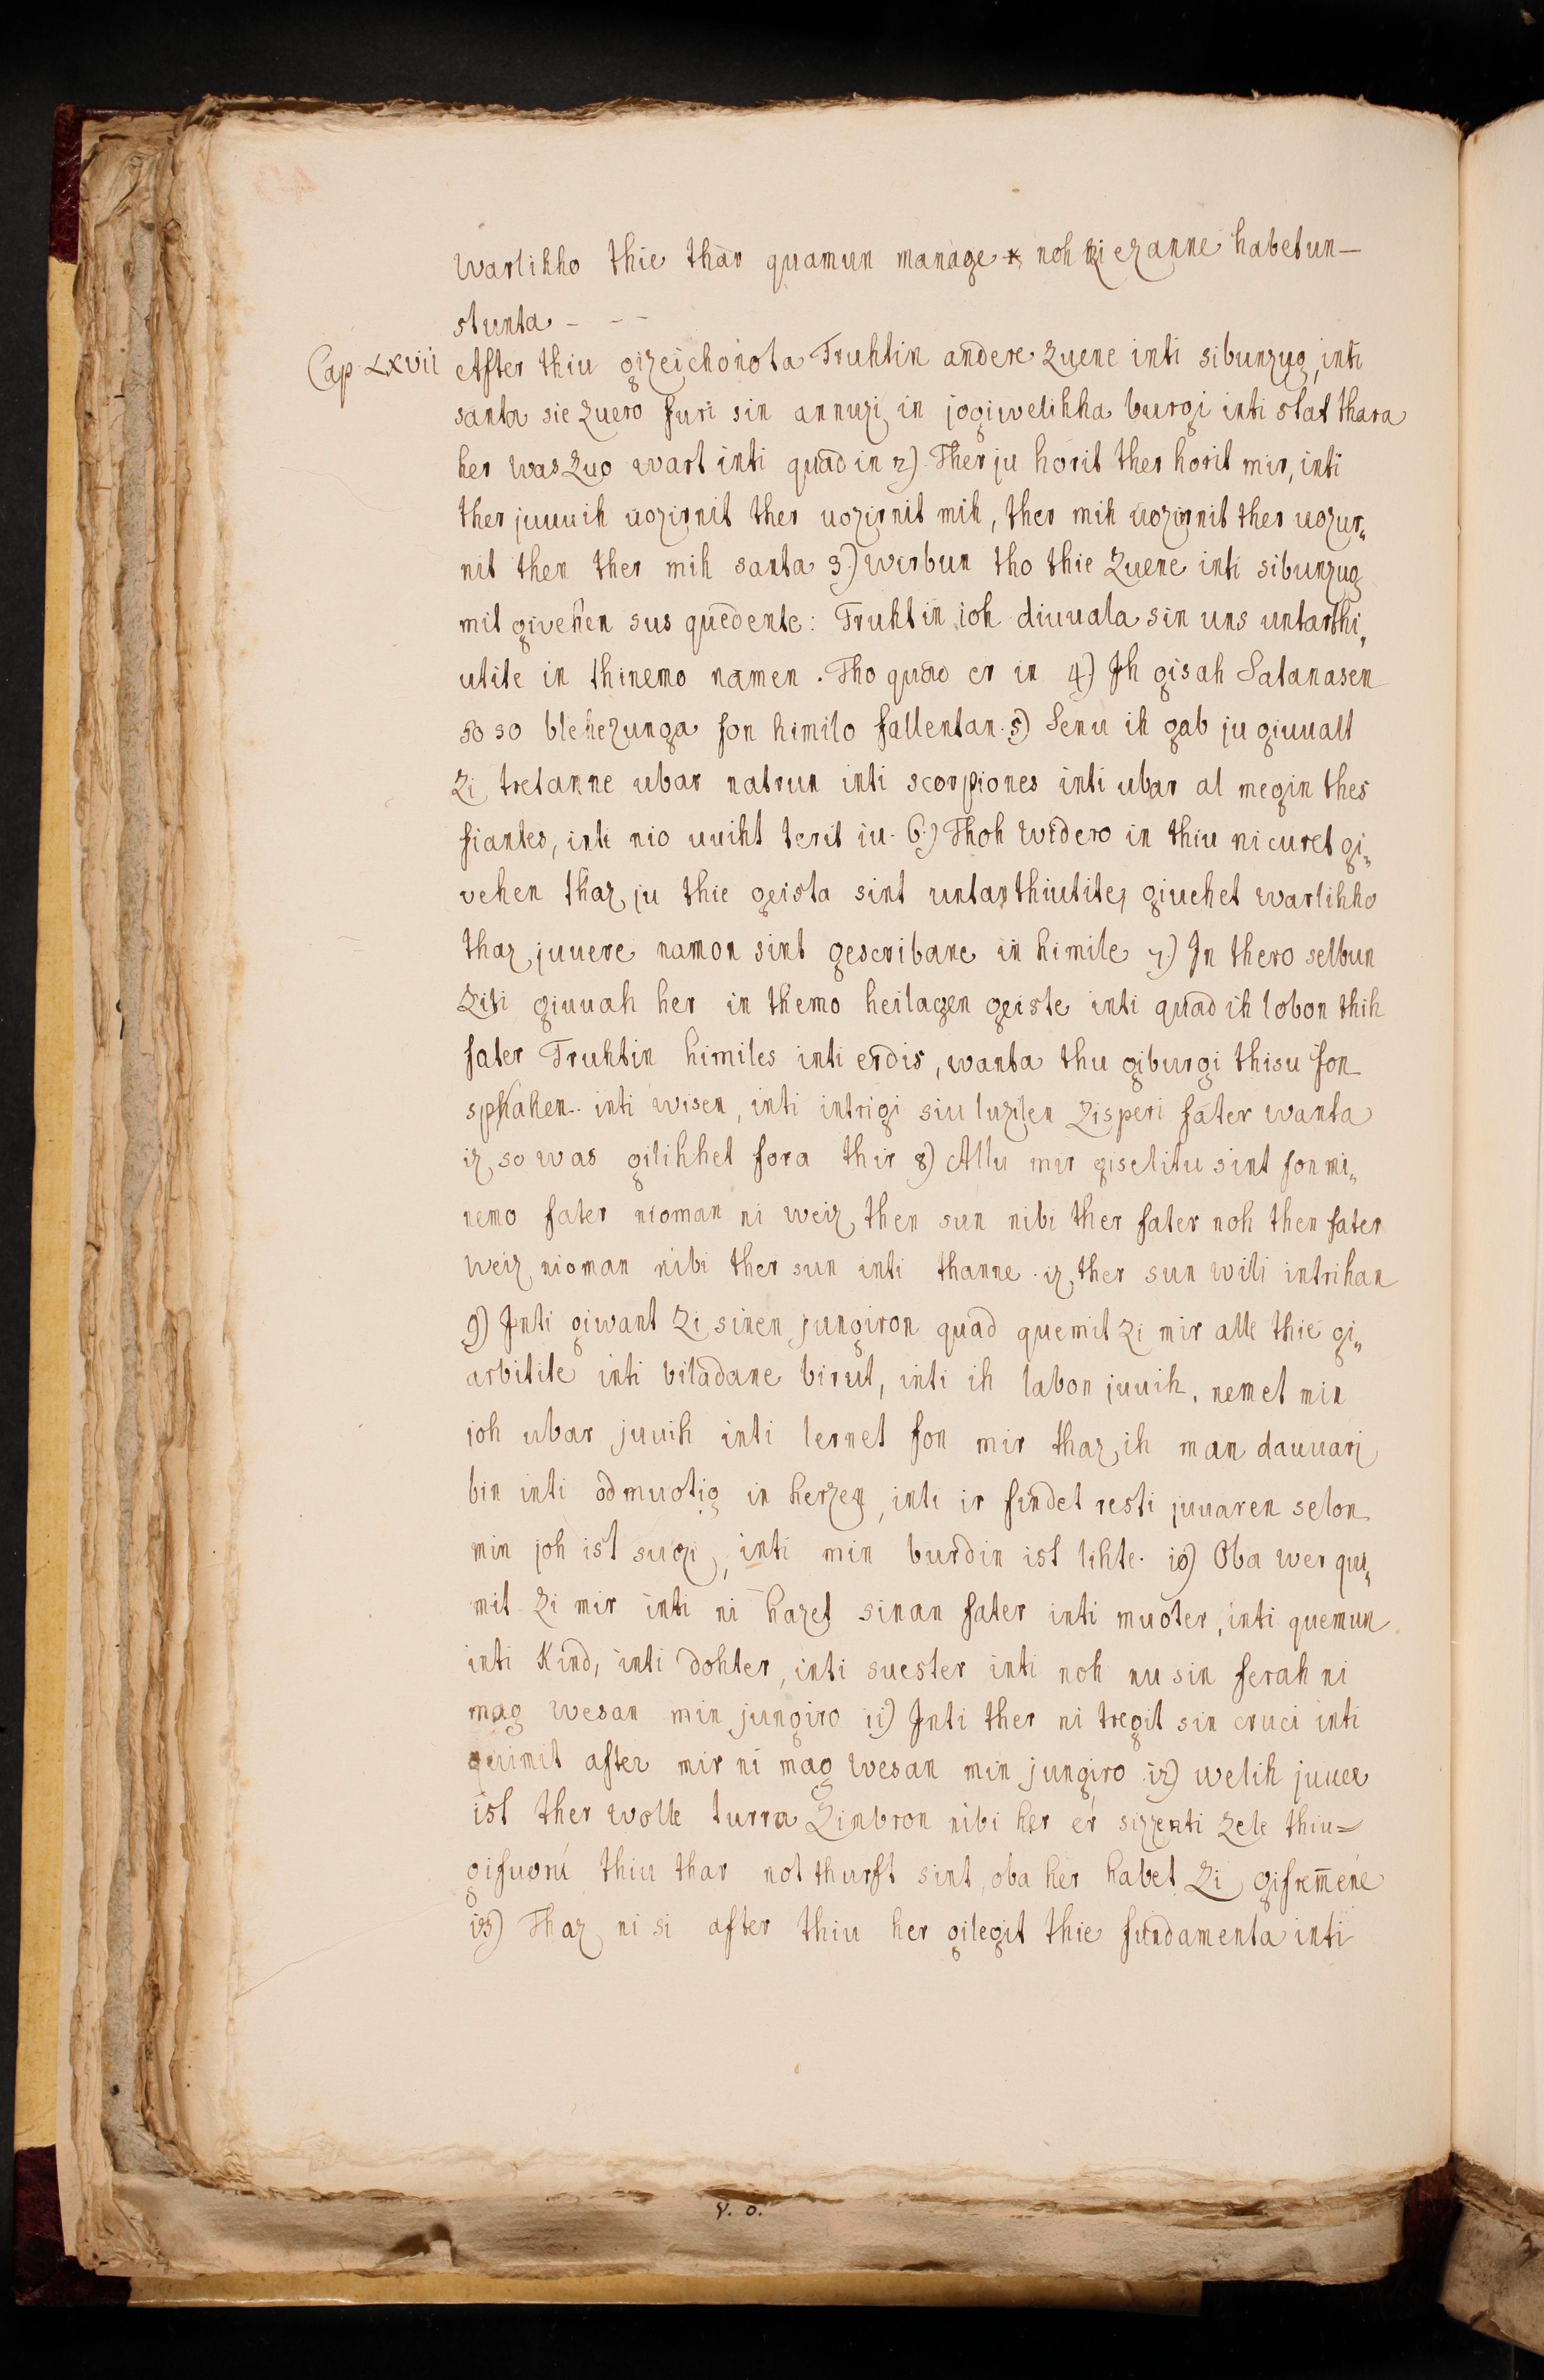 warlihho thie thar quamun manage noh zi ezanne habetun–
stunta – – –
Cap LXVII After thiu gizeichonota Truhtin andere zuene inti sibunzug, inti
santa sie zuero furi sin annuzi in jogiwelihha burgi inti stat thara
her was zuo wart inti quad in 2) Ther ju horit ther horit mir, inti
ther juuuih uozirnit ther uozirnit mih, ther mih uozirnit ther uozur„
nit then ther mih santa 3) wirbun tho thie zuene inti sibunzug
mit givehen sus quedente: Truhtin ioh diuuala sin uns untarthi„
utite in thinemo namen. Tho quad er in 4) Ih gisah Satanasen
so so blehezunga fon himilo fallentan. 5) Senu ih gab ju giuualt
zi tretanne ubar natrun inti scorpiones inti ubar al megin thes
fiantes, inti nio uuiht terit iu. 6.) Thoh widero in thiu ni curet gi„
vehen thaz ju thie geista sint untarthiutite, giuehet warlihho
thaz juuere namon sint gescribane in himile 7.) In thero selbun
ziti giuuah her in themo heilagen geiste inti quad ih lobon thih
fater Truhtin himiles inti erdis, wanta thu giburgi thisu fon
sphahen inti wisen, inti intrigi siu luzilen zisperi fater wanta
iz so was gilihhet fora thir 8) Allu mir giselitu sint fon mi„
nemo fater nioman ni weiz then sun nibi ther fater noh then fater
weiz nioman nibi ther sun inti thanne iz ther sun wili intrihan
9) Inti giwant zi sinen jungiron quad quemit zi mir alle thie gi„
arbitite inti biladane birut, inti ih labon juuih, nemet min
joh ubar juuih inti lernet fon mir thaz ih man dauuari
bin inti odmuotig in herzen, inti ir findet resti juuaren selon
min joh ist suozi, inti min burdin ist lihte. 10) Oba wer qui„
mit zi mir inti ni hazet sinan fater inti muoter, inti quemun
inti Kind, inti dohter, inti suester inti noh nu sin ferah ni
mag wesan min jungiro 11) Inti ther ni tregit sin cruci inti
quimit after mir ni mag wesan min jungiro 12) welih juuer
ist ther wolle turra Zimbron nibi her er sizzenti zele thiu=
gifuoru thiu thar not thurft sint, oba her habet zi gifrem̄ene
13) Thaz ni si after thiu her gilegit thie fundamenta inti
V. O.